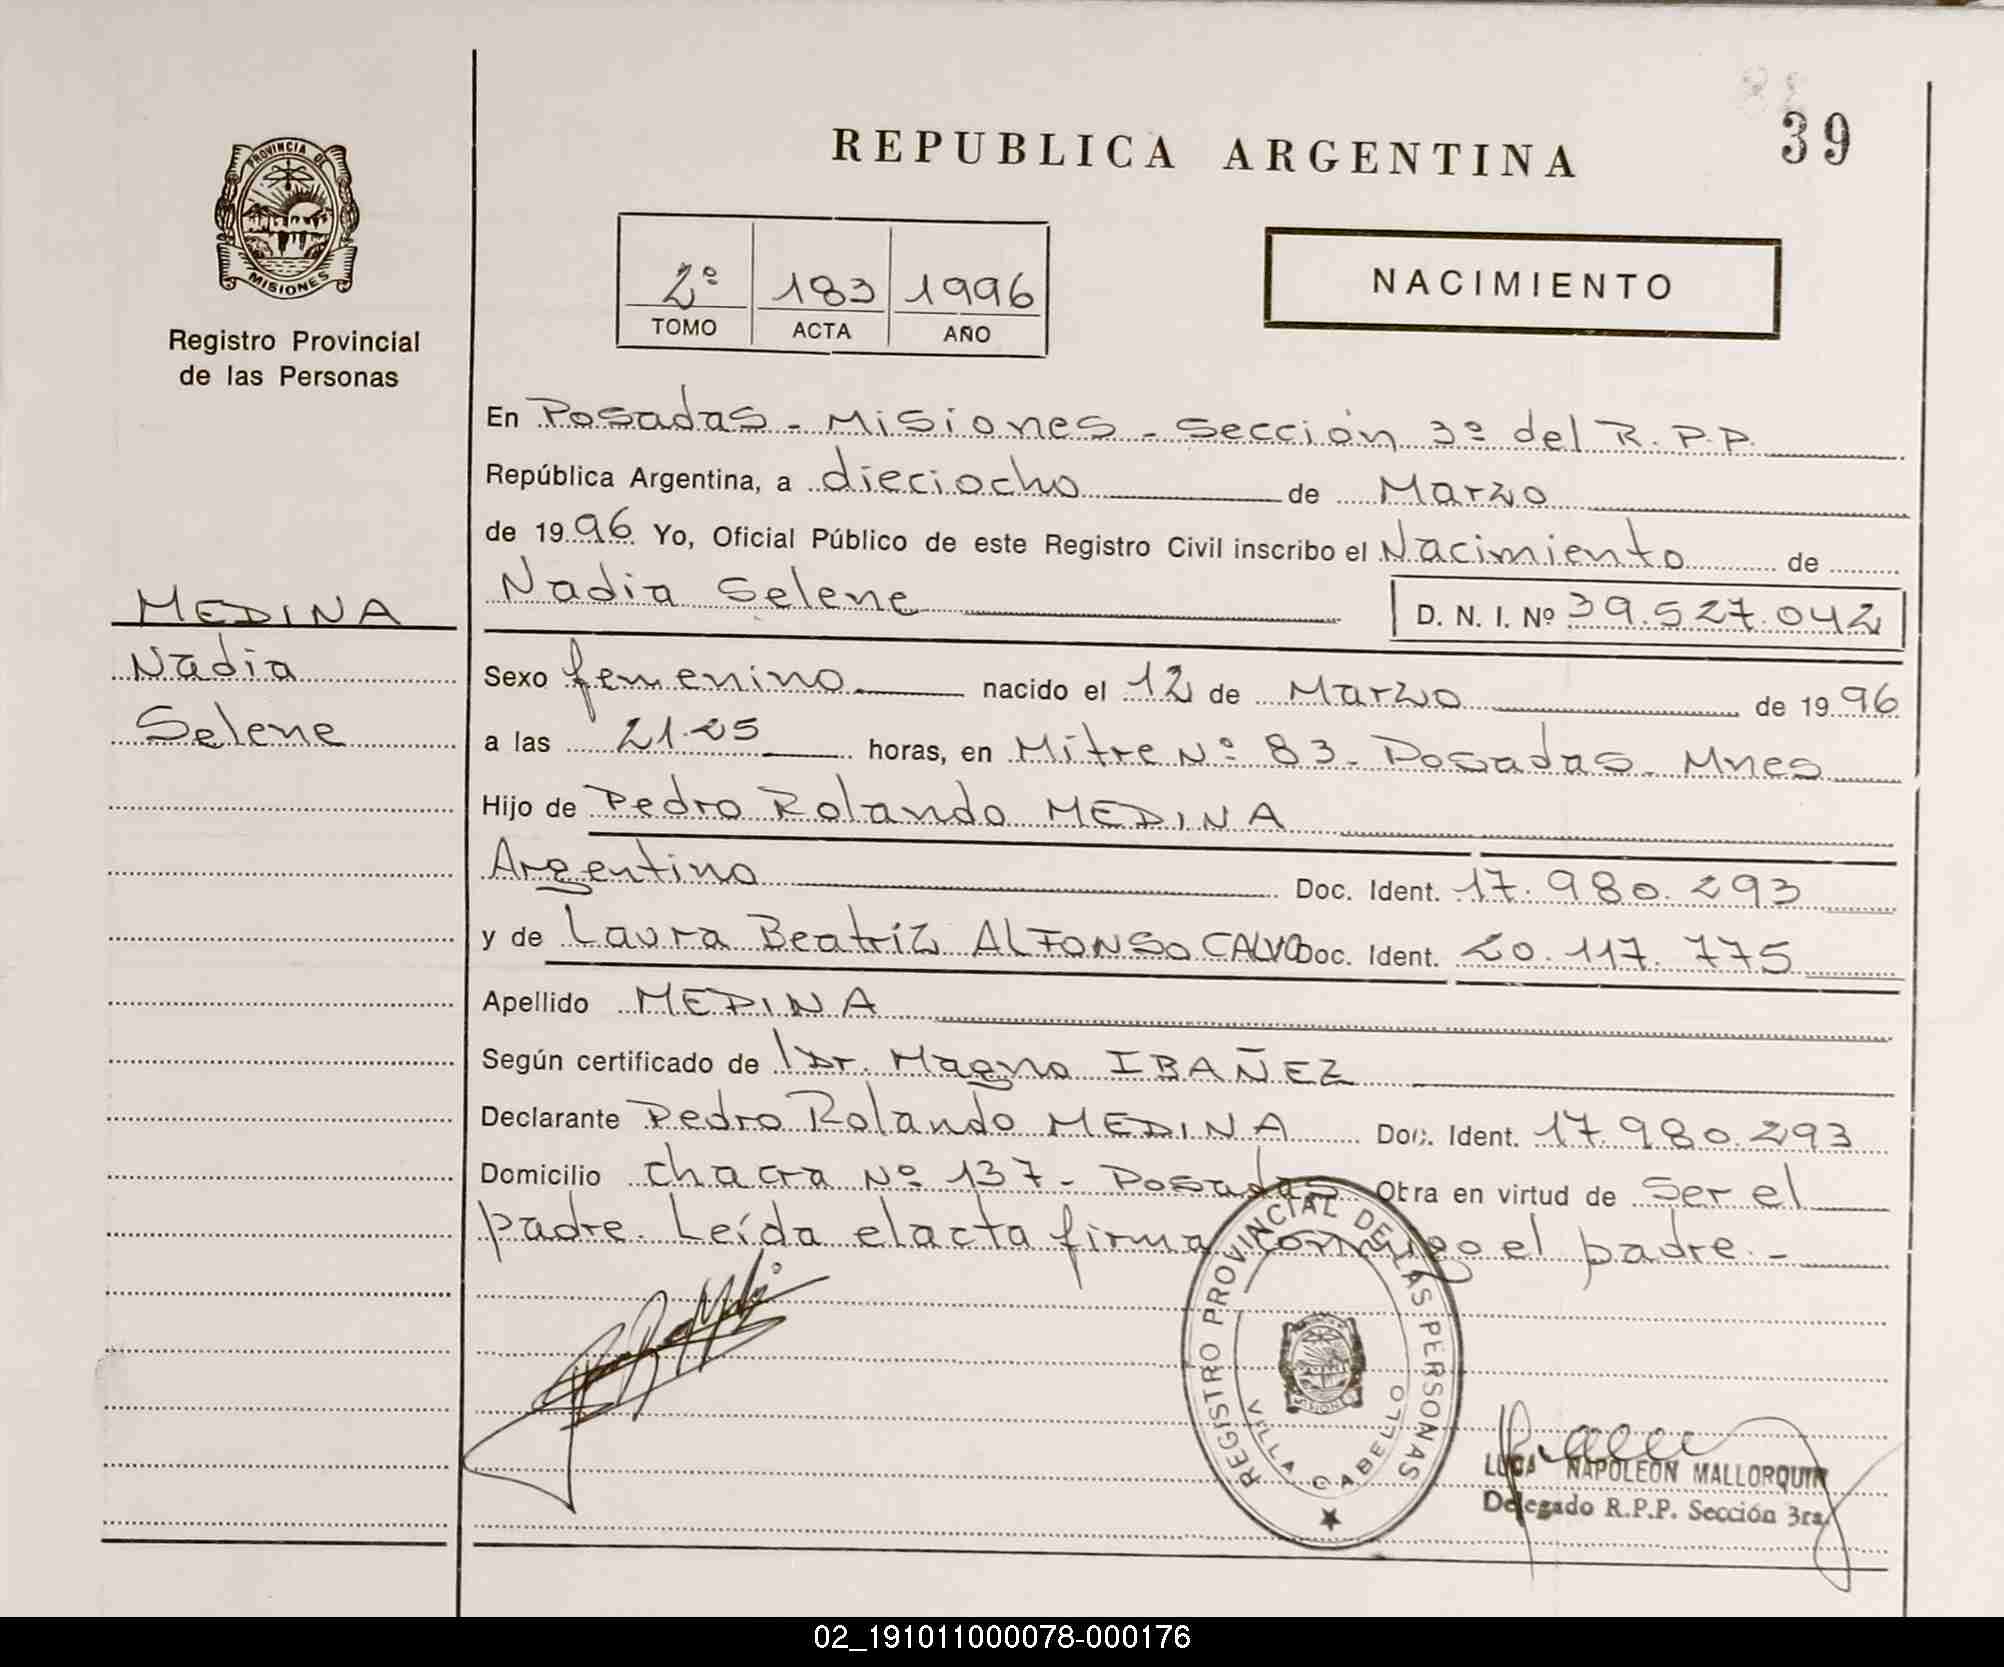 39
REPUBLICA ARGENTINA
PROVINCIA DE
MISIONES
Registro Provincial
de las Personas
2º 183 1996
TOMO ACTA AÑO
NACIMIENTO
En Posadas - Misiones - Sección 3º del R.P.P.
República Argentina, a dieciocho de Marzo
de 1996 Yo, Oficial Público de este Registro Civil inscribo el Nacimiento de
Nadia Selene D. N. I. Nº 39.527.042
MEDINA
Nadia
Selene
Sexo femenino nacido el 12 de Marzo de 1996
a las 21.25 horas, en Mitre Nº 83 - Posadas - Mnes
Hijo de Pedro Rolando MEDINA
Argentino Doc. Ident. 17.980.293
y de Laura Beatriz ALFONSO CALVO Doc. Ident. 20.117.775
Apellido MEDINA
Según certificado de Dr. Magno IBAÑEZ
Declarante Pedro Rolando MEDINA Doc. Ident. 17.980.293
Domicilio chacra Nº 137 - Posadas Obra en virtud de ser el
padre. Leída el acta firma conmigo el padre. -
REGISTRO PROVINCIAL DE LAS PERSONAS
VILLA CABELLO
NAPOLEON MALLORQUIN
Delegado R.P.P. Sección 3ra
02_191011000078-000176